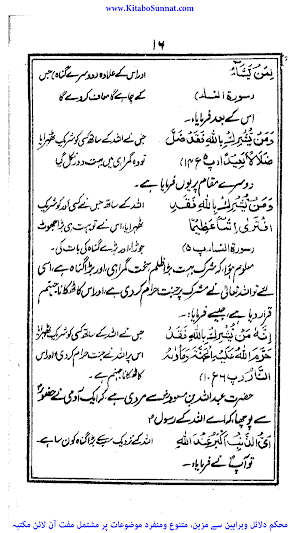 www.KitaboSunnat.com
۱۶
لِمَنْ يَّشَآءُ اور اس کے علاوہ (دوسرے گناہ) جس
(سورۃ النساء) کے چاہے گا معاف کر دے گا
اس کے بعد فرمایا۔
وَمَنْ يُّشْرِكْ بِاللهِ فَقَدْ ضَلَّ جس نے اللہ کے ساتھ کسی کو شریک ٹھہرایا
ضَلَالًا بَعِيْدًا (پ ۵ ع ۱۴) تو وہ گمراہی میں بہت دور نکل گیا
دوسرے مقام پر یوں فرمایا ہے۔
وَمَنْ يُّشْرِكْ بِاللهِ فَقَدِ اللہ کے ساتھ جس نے کسی اور کو شریک
افْتَرٰى اِثْمًا عَظِيْمًا ٹھہرایا، اس نے تو بہت ہی بڑا جھوٹ
(سورۃ النساء پ ۵) جوڑا اور بڑے گناہ کی بات کی۔
معلوم ہوا کہ شرک بہت بڑا ظلم، سخت گمراہی اور بڑا گناہ ہے، اسی
لئے تو اللہ تعالیٰ نے مشرک پر جنت حرام کر دی ہے، اور اس کا ٹھکانا جہنم
قرار دیا ہے، جیسے فرمایا:۔
اِنَّهٗ مَنْ يُّشْرِكْ بِاللهِ فَقَدْ جس نے اللہ کے ساتھ کسی کو شریک ٹھہرایا
حَرَّمَ اللهُ عَلَيْهِ الْجَنَّةَ وَمَأْوٰىهُ اس پر اللہ نے جنت حرام کر دی اور اس
النَّارُ (پ ۶ ع ۱۰) کا ٹھکانا جہنم ہے۔
حضرت عبد اللہ بن مسعودؓ سے مروی ہے، کہ ایک آدمی نے حضورؐ
سے پوچھا، کہ اے اللہ کے رسولؐ!
اَيُّ الذَّنْبِ اَكْبَرُ عِنْدَ اللهِ اللہ کے نزدیک سب سے بڑا گناہ کون سا ہے۔
تو آپؐ نے فرمایا۔
محکم دلائل وبراہین سے مزین، متنوع ومنفرد موضوعات پر مشتمل مفت آن لائن مکتبہ